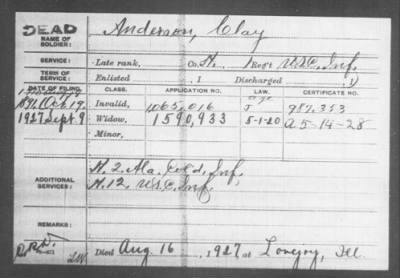 DEAD
NAME OF SOLDIER: Anderson, Clay
SERVICE: Late rank, Co. H, Reg't U.S.C. Inf.
TERM OF SERVICE: Enlisted , 1 Discharged , 1
DATE OF FILING. CLASS. APPLICATION NO. LAW. CERTIFICATE NO.
1891 Oct 19 Invalid, 1065,016 J 987,353
1927 Sept. 9 Widow, 1590,933 5-1-20 A 5-14-28
Minor,
ADDITIONAL SERVICES: H. 2, Ala. Col'd. Inf.
H. 12, U.S.C. Inf.
REMARKS:
Died Aug. 16, 1927, at Lovejoy, Ill.